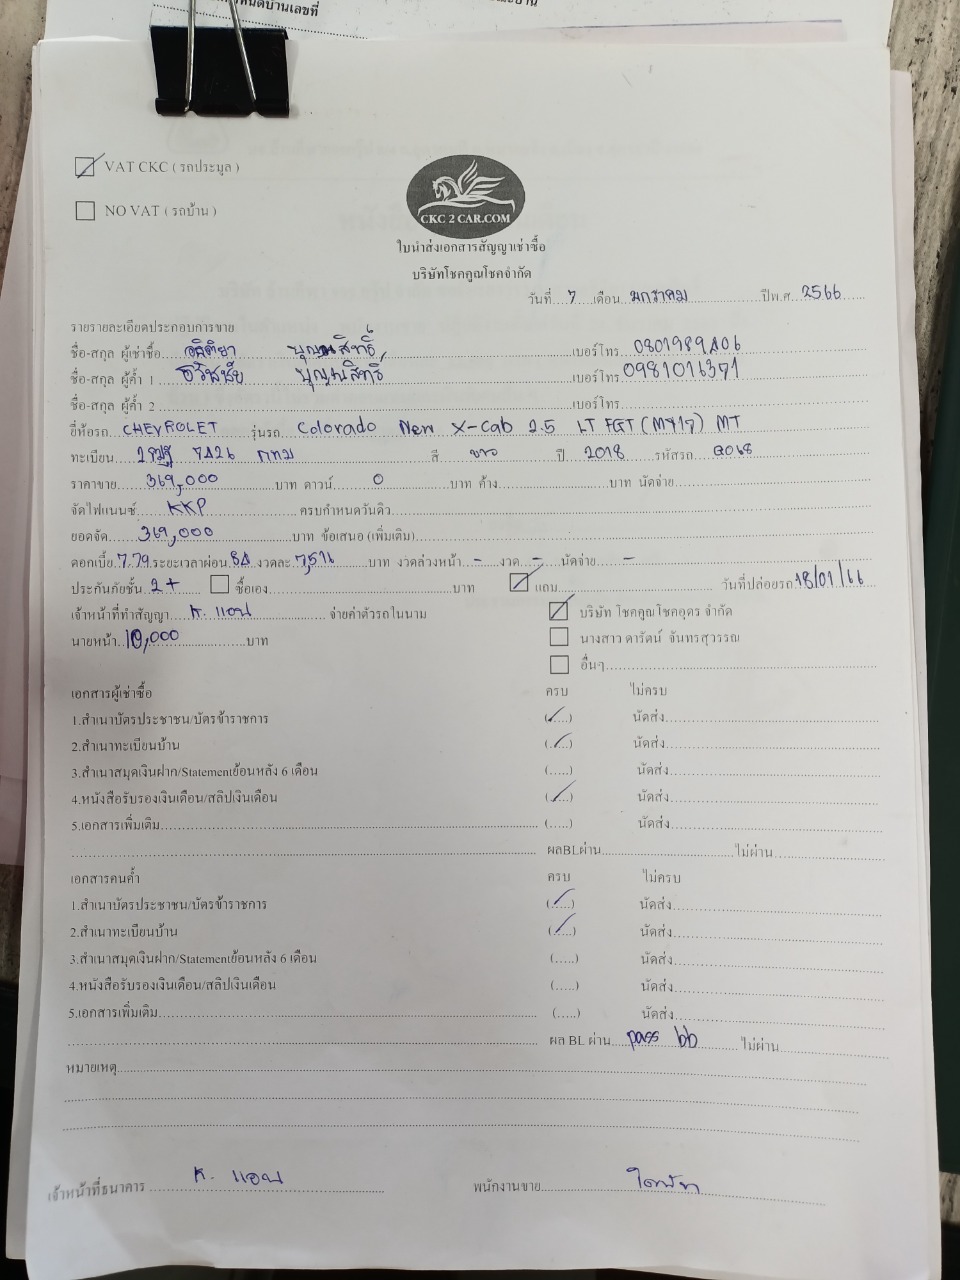 VAT CKC ( รถประมูล )
NO VAT ( รถบ้าน )
CKC 2 CAR.COM
ใบนำส่งเอกสารสัญญาเช่าซื้อ
บริษัทโชคคูณโชคจำกัด
วันที่....7....เดือน...มกราคม.....................ปีพ.ศ...2566......
รายรายละเอียดประกอบการขาย
ชื่อ-สกุล ผู้เช่าซื้อ.... บุญณสิทธิ์ ....เบอร์โทร.
ชื่อ-สกุล ผู้ค้ำ 1 ... ธวัชชัย บุญณสิทธิ์ ....เบอร์โทร. 0981016371
ชื่อ-สกุล ผู้ค้ำ 2 ........................เบอร์โทร..............
ยี่ห้อรถ...CHEVROLET......รุ่นรถ... Colorado New X-Cab 2.5 LT FGT (MY17) MT
ทะเบียน... กทม ......สี... ขาว ......ปี... 2018 ...รหัสรถ...
ราคาขาย....369,000.............บาท ดาวน์........0.............บาท ค้าง.....................บาท นัดจ่าย.............
จัดไฟแนนซ์.......KKP..................ครบกำหนดวันดิว............
ยอดจัด.....369,000................บาท ข้อเสนอ (เพิ่มเติม)..............
ดอกเบี้ย.7.79.ระยะเวลาผ่อน.84.งวดละ.7,516....บาท งวดล่วงหน้า..-...งวด....-....นัดจ่าย......-
ประกันภัยชั้น..2+......... ซื้อเอง..................บาท แถม............วันที่ปล่อยรถ.18/01/66
เจ้าหน้าที่ทำสัญญา....K. แอน.............จ่ายค่าตัวรถในนาม บริษัท โชคคูณโชคอุตร จำกัด
นายหน้า..10,000................บาท นางสาว ดารัตน์ จันทรสุวรรณ
อื่นๆ.............................
เอกสารผู้เช่าซื้อ ครบ ไม่ครบ
1.สำเนาบัตรประชาชน/บัตรข้าราชการ (.....) นัดส่ง.............
2.สำเนาทะเบียนบ้าน (.....) นัดส่ง.............
3.สำเนาสมุดเงินฝาก/Statementย้อนหลัง 6 เดือน (.....) นัดส่ง.............
4.หนังสือรับรองเงินเดือน/สลิปเงินเดือน (.....) นัดส่ง.............
5.เอกสารเพิ่มเติม............................ (.....) นัดส่ง.............
............................ ผลBLผ่าน.........................ไม่ผ่าน..............
เอกสารคนค้ำ ครบ ไม่ครบ
1.สำเนาบัตรประชาชน/บัตรข้าราชการ (.....) นัดส่ง.............
2.สำเนาทะเบียนบ้าน (.....) นัดส่ง.............
3.สำเนาสมุดเงินฝาก/Statementย้อนหลัง 6 เดือน (.....) นัดส่ง.............
4.หนังสือรับรองเงินเดือน/สลิปเงินเดือน (.....) นัดส่ง.............
5.เอกสารเพิ่มเติม............................ (.....) นัดส่ง.............
............................ ผล BL ผ่าน....pass bb........ไม่ผ่าน..............
หมายเหตุ............................
เจ้าหน้าที่ธนาคาร .........K. แอน................ พนักงานขาย..............